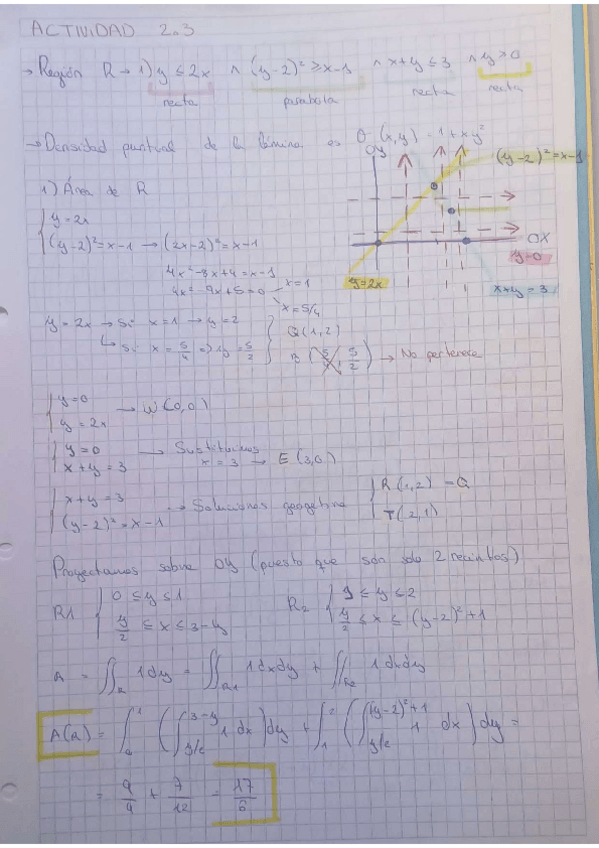 ACTIVIDAD 2.3
→ Región R → 1) y ≤ 2x ∧ (y-2)² ≥ x-1 ∧ x+y ≤ 3 ∧ y > 0
recta parabola recta recta
→ Densidad puntual de la lámina es σ(x,y) = 1 + xy²
OY
(y-2)² = x-1
1) Área de R
{ y = 2x
(y-2)² = x-1 → (2x-2)² = x-1
OX
y=0
4x² - 8x + 4 = x-1
y=2x
x+y = 3
4x² - 9x + 5 = 0
x = 1
x = 5/4
y = 2x → Si x = 1 → y = 2
Q(1,2)
↳ Si x = 5/4 => y = 5/2
(5/4, 5/2) → No pertenece
{ y = 0
y = 2x → W(0,0)
{ y = 0
x+y = 3 → Sustituimos x = 3 → E(3,0)
{ x+y = 3
(y-2)² = x-1 → Soluciones
{ R(1,2) = Q
T(2,1)
Proyectamos sobre OY (puesto que son solo 2 recintos)
R1 { 0 ≤ y ≤ 1
y/2 ≤ x ≤ 3-y
R2 { 1 ≤ y ≤ 2
y/2 ≤ x ≤ (y-2)² + 1
A = ∬_R 1 dy = ∬_R1 1 dx dy + ∬_R2 1 dx dy
A(R) = ∫₀¹ (∫_{y/2}^{3-y} 1 dx) dy + ∫₁² (∫_{y/2}^{(y-2)²+1} 1 dx) dy =
= 9/4 + 7/12 = 17/6